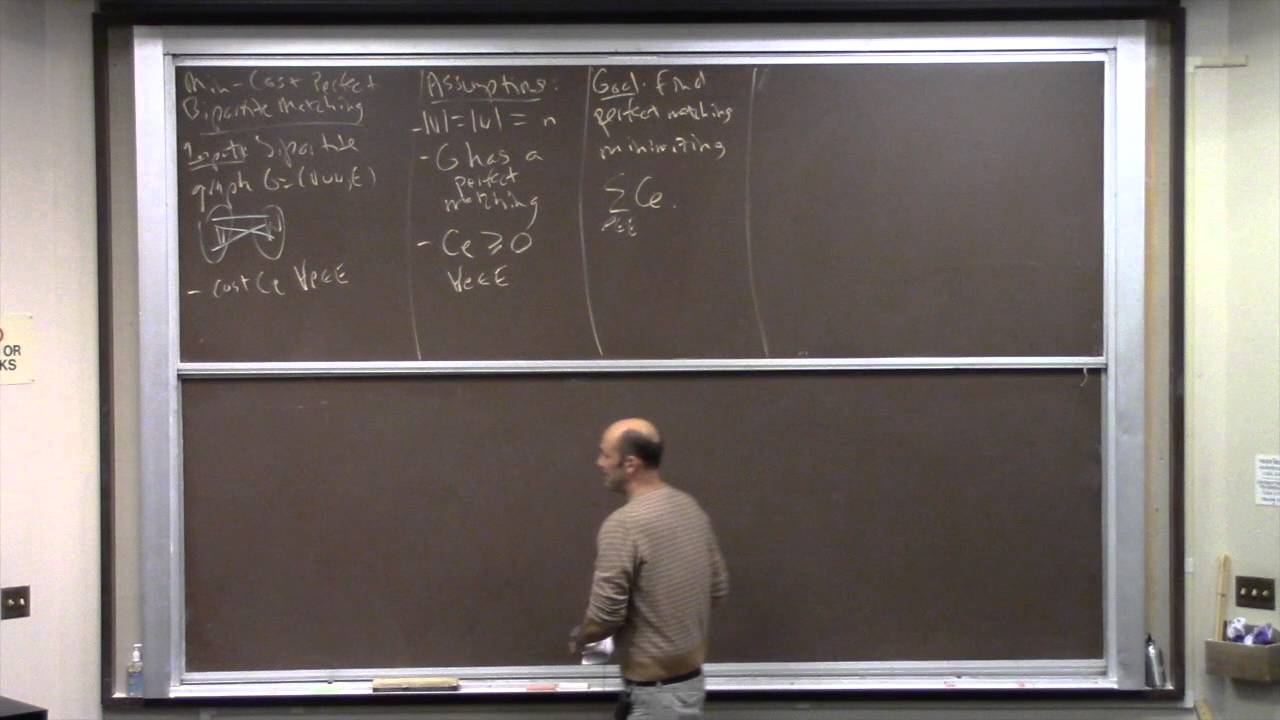 Min-Cost Perfect
Bipartite Matching
Input: bipartite
graph G=(V∪W,E)
- cost Ce ∀e∈E
Assumptions:
- |V|=|W|= n
- G has a
perfect
matching
- Ce ≥ 0
∀e∈E
Goal: find
perfect matching
minimizing
∑ Ce.
OR
KS